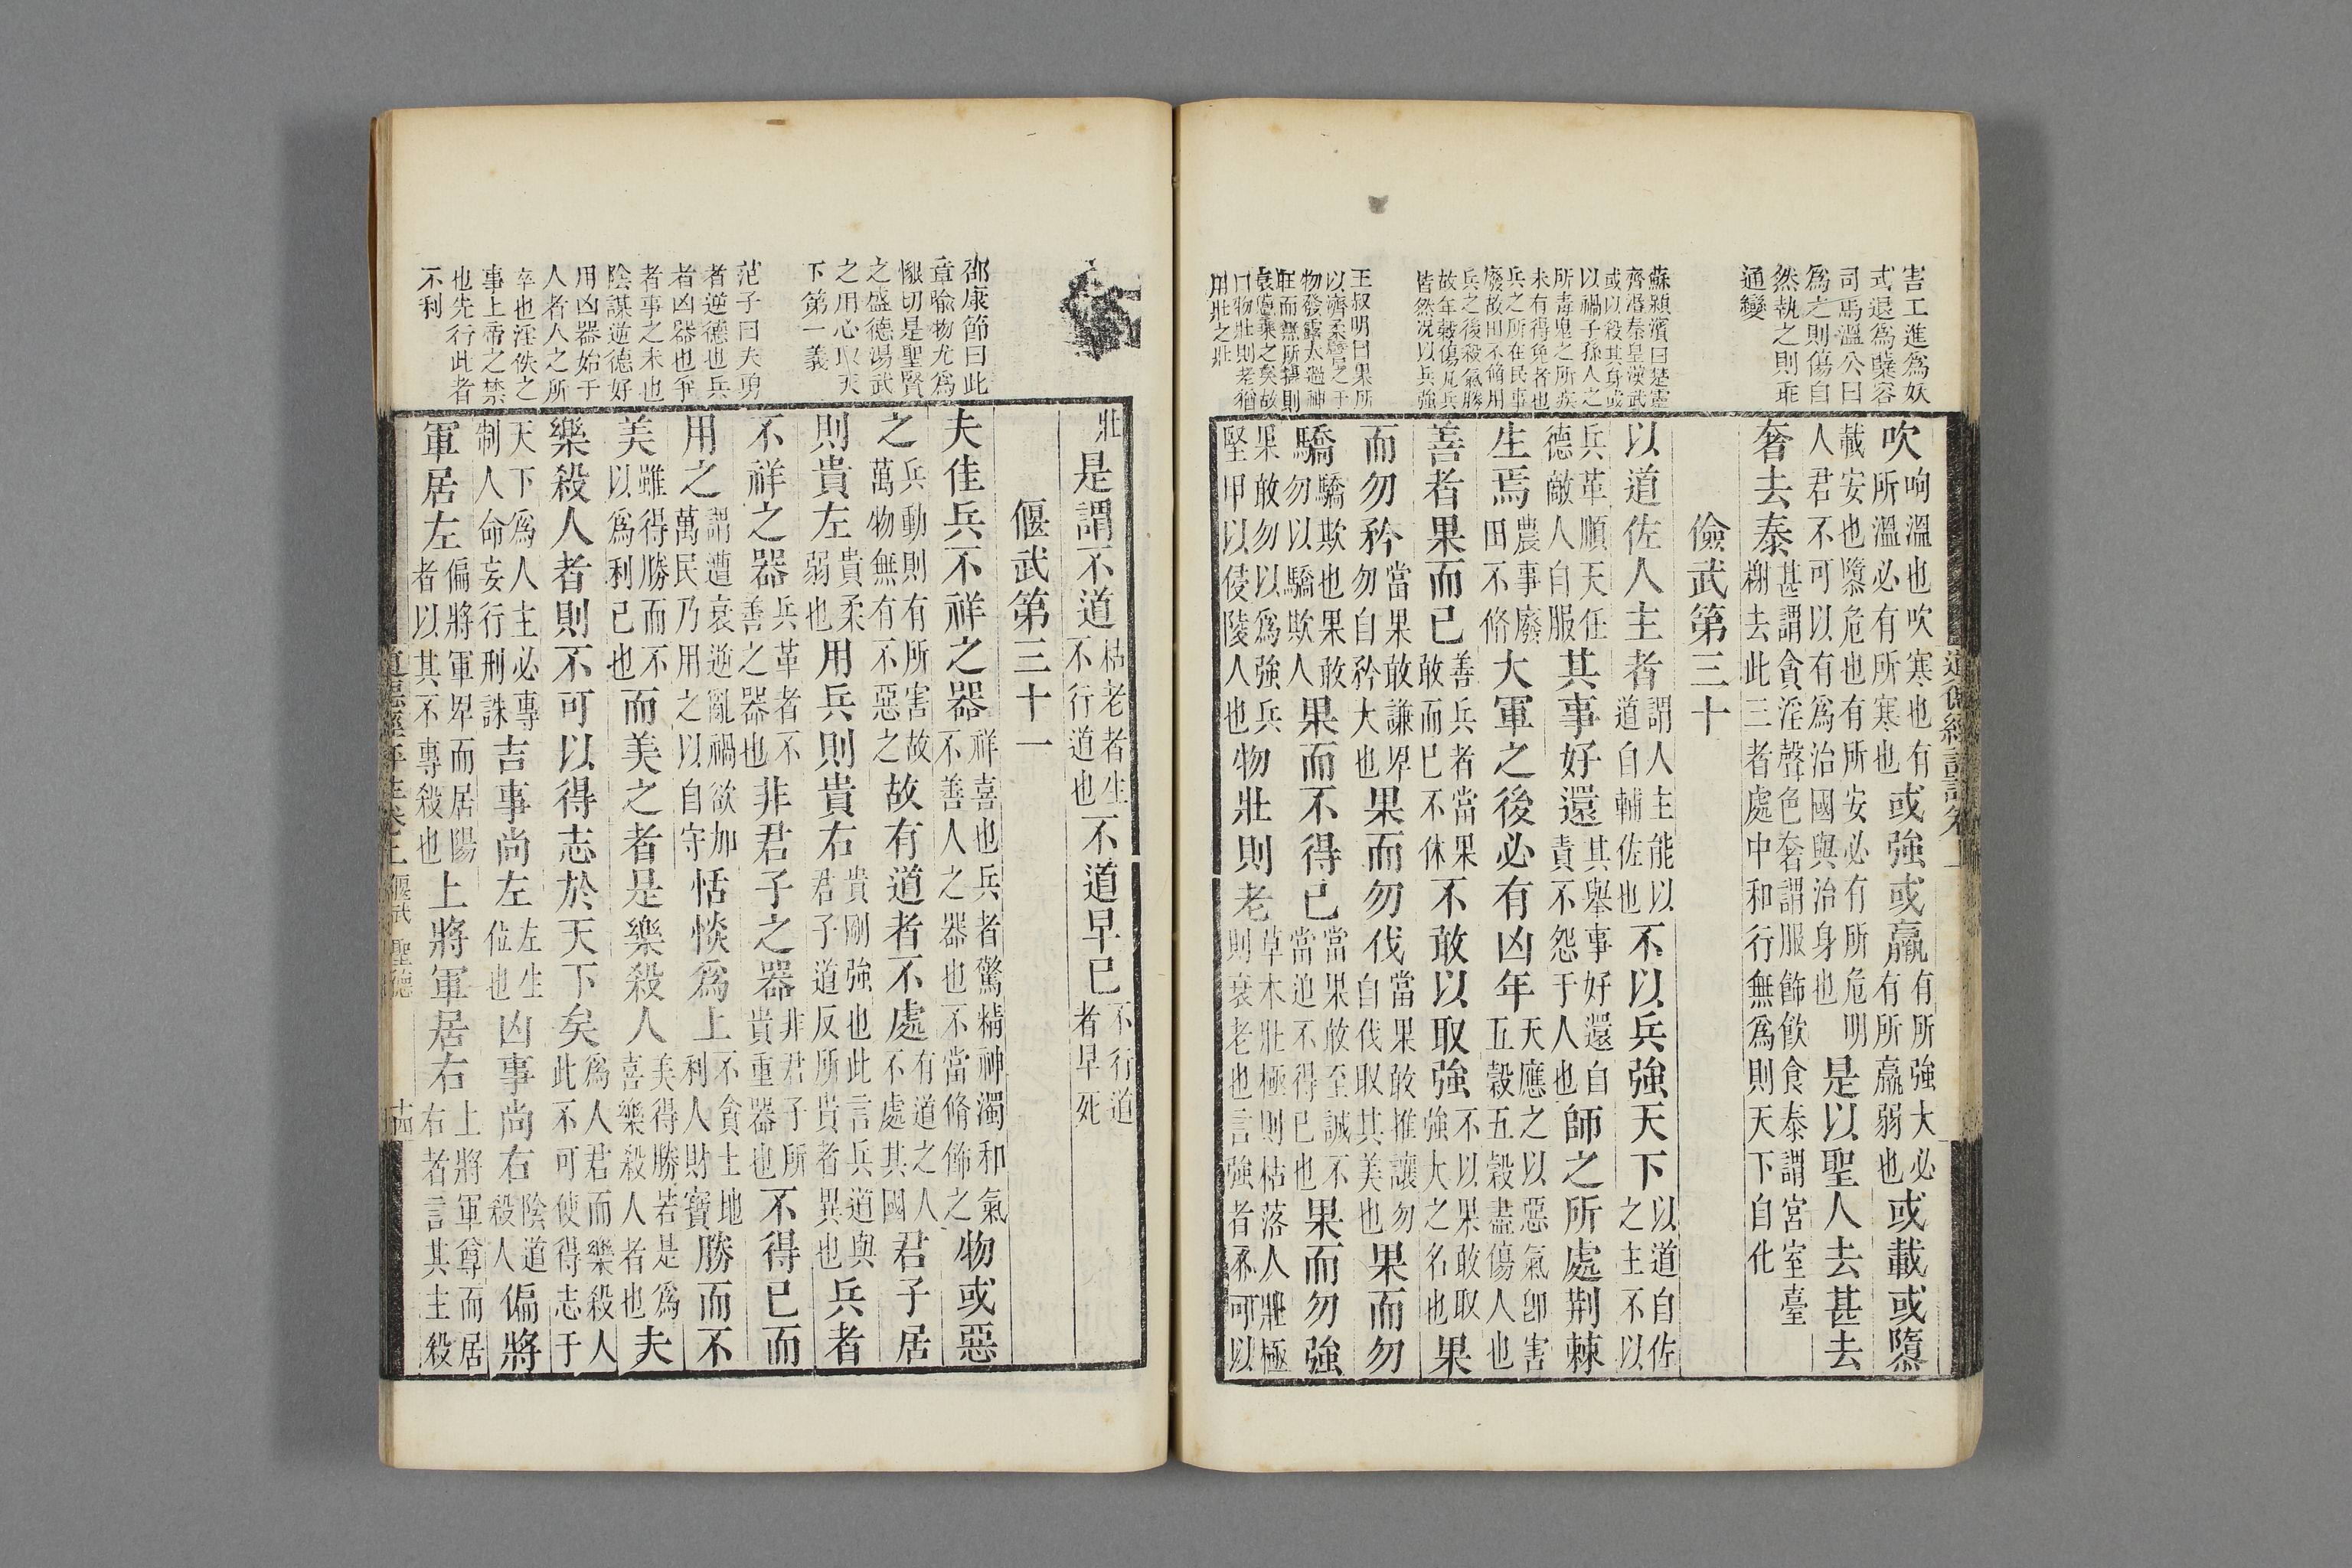 害工進爲妖
式退爲蘖容
司馬溫公曰
爲之則傷自
然執之則乖
通變
蘇潁濱曰楚靈
齊湣秦皇漢武
或以殺其身或
以禍子孫人之
所毒鬼之所疾
未有得免者也
兵之所在民事
廢故田不脩用
兵之後殺氣勝
故年穀傷凡兵
皆然况以兵強
王叔明曰果所
以濟柔
物發露太過神
旺而無所攝則
衰 乘之矣故
曰物壯則老猶
用壯之壯
吹呴溫也吹寒也有所溫必有所寒也或強或羸有所強大必有所羸弱也或載或隳
載安也隳危也有所安必有所危明人君不可以有爲治國與治身也是以聖人去甚去
奢去泰甚謂貪淫聲色奢謂服飾飲食泰謂宮室臺榭去此三者處中和行無爲則天下自化
儉武第三十
以道佐人主者謂人主能以道自輔佐也不以兵強天下以道自佐之主不以
兵革順天任德敵人自服其事好還其舉事好還自責不怨于人也師之所處荆棘
生焉農事廢田不脩大軍之後必有凶年天應之以惡氣卽害五穀五穀盡傷人也
善者果而已善兵者當果敢而已不休不敢以取強不以果敢取強大之名也果
而勿矜當果敢謙卑勿自矜大也果而勿伐當果敢推讓勿自伐取其美也果而勿
驕驕欺也果敢勿以驕欺人果而不得已當果敢至誠不當迫不得已也果而勿強
果敢勿以爲強兵堅甲以侵陵人也物壯則老草木壯極則枯落人壯極則衰老也言強者不可以
邵康節曰此
章喻物尤爲
懇切是聖賢
之盛德湯武
之用心取天
下第一義
范子曰夫勇
者逆德也兵
者凶器也爭
者事之末也
陰謀逆德好
用凶器始于
人者人之所
卒也淫佚之
事上帝之禁
也先行此者
不利
壯是謂不道枯老者生不行道也不道早已不行道者早死
偃武第三十一
夫佳兵不祥之器祥喜也兵者驚精神濁和氣不善人之器也不當脩飾之物或惡
之兵動則有所害故萬物無有不惡之故有道者不處有道之人不處其國君子居
則貴左貴柔弱也用兵則貴右貴剛強也此言兵道與君子道反所貴者異也兵者
不祥之器兵革者不善之器也非君子之器非君子所貴重器也不得已而
用之謂遭衰逆亂禍欲加萬民乃用之以自守恬惔爲上不貪土地利人財寶勝而不
美雖得勝而不以爲利已也而美之者是樂殺人美得勝若是爲喜樂殺人者也夫
樂殺人者則不可以得志於天下矣爲人君而樂殺人此不可使得志于
天下爲人主必專制人命妄行刑誅吉事尚左左生位也凶事尚右陰道殺人偏將
軍居左偏將軍卑而居陽者以其不專殺也上將軍居右上將軍尊而居右者言其主殺
偃武 聖德